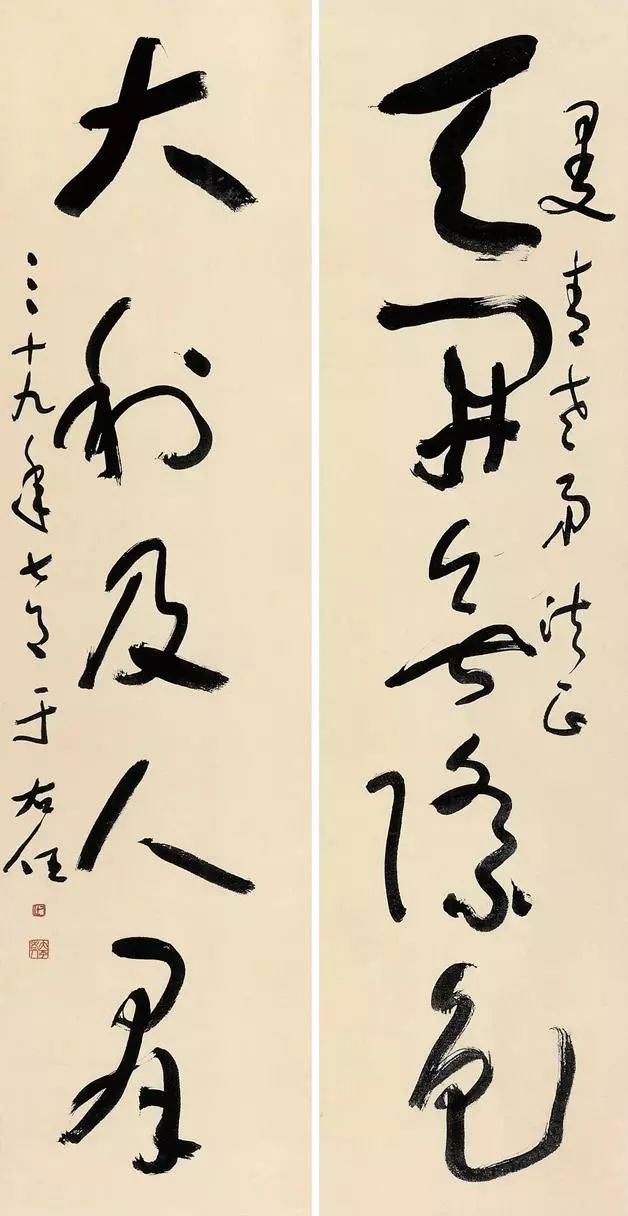 曼青老弟法正
天開無際色
大利及人羣
三十九年七月 于右任